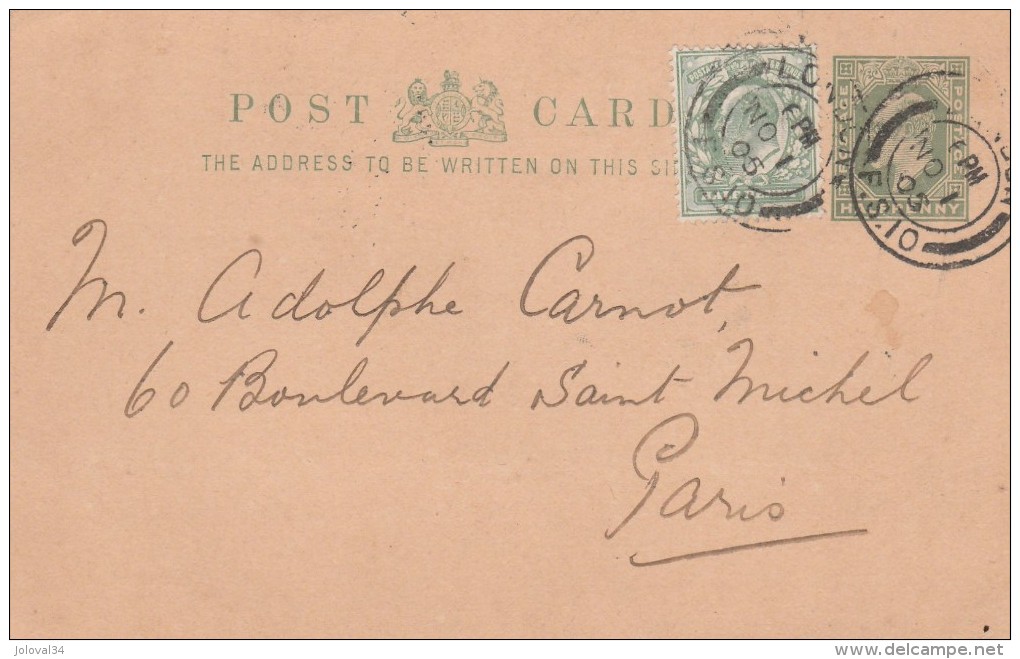 POST CARD
THE ADDRESS TO BE WRITTEN ON THIS SI
POSTAGE
LONDON F.S.
6 PM
NO 1
05
HALFPENNY
LONDON F.S.
6 PM
NO 1
05
M. Adolphe Carnot,
60 Boulevard Saint Michel
Paris
joloval34
delcampe.net